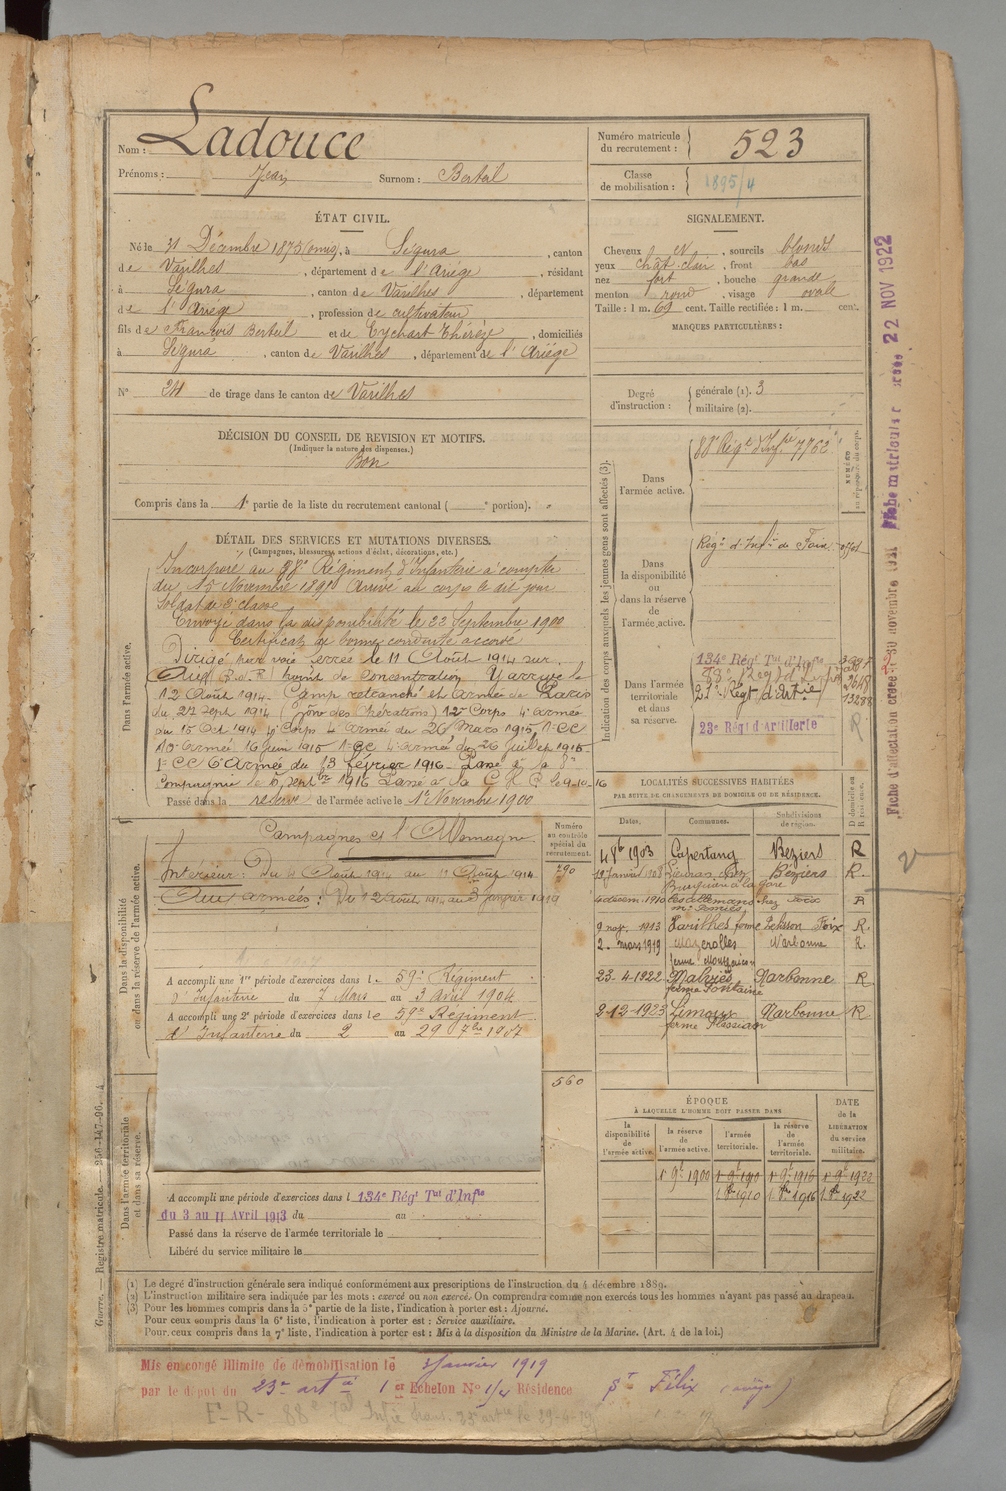 Nom : Ladouce
Prénoms : Jean Surnom : Berteil
Numéro matricule du recrutement : 523
Classe de mobilisation : 1895/4
ÉTAT CIVIL.
Né le 31 Décembre 1875 (omis), à Ségura, canton
de Varilhes, département de l'Ariège, résidant
à Ségura, canton de Varilhes, département
de l'Ariège, profession de cultivateur
fils de François Berteil et de Eychart Thérèze, domiciliés
à Ségura, canton de Varilhes, département de l'Ariège
N° 24 de tirage dans le canton de Varilhes
SIGNALEMENT.
Cheveux et sourcils blonds
yeux chât. clair, front bas
nez fort, bouche grande
menton rond, visage ovale
Taille : 1 m. 69 cent. Taille rectifiée : 1 m. cent.
MARQUES PARTICULIÈRES :
Degré d'instruction : générale (1). 3
militaire (2).
DÉCISION DU CONSEIL DE REVISION ET MOTIFS.
(Indiquer la nature des dispenses.)
Bon
Compris dans la 1e partie de la liste du recrutement cantonal ( e portion).
DÉTAIL DES SERVICES ET MUTATIONS DIVERSES.
(Campagnes, blessures, actions d'éclat, décorations, etc.)
Dans l'armée active.
Incorporé au 88e Régiment d'Infanterie à compter
du 15 Novembre 1897 Arrivé au corps le dit jour
Soldat de 2e classe
Envoyé dans la disponibilité le 22 Septembre 1900
Certificat de bonne conduite accordé
Dirigé par voie ferrée le 11 Août 1914 sur
point de concentration. Y arrive le
12 Août 1914. Camp retranché et Armée de Paris
du 27 Sept 1914 12e Corps 4e armée
du 15 Oct 1914 4e Corps 4e armée du 26 Mars 1915, 1e CC
10e armée 16 Juin 1915 1e CC 4e armée du 26 Juillet 1915
1e CC 6e Armée du 13 février 1916. Passé à la 8e
Compagnie le 5 septbre 1916 Passé à la C H R le 9-10-16
Passé dans la réserve de l'armée active le 1er Novembre 1900
Indication des corps auxquels les jeunes gens sont affectés (3).
NUMÉRO au répertoire du corps.
Dans l'armée active. 88e Régt d'Infie 7762
Dans la disponibilité ou dans la réserve de l'armée active. Régt d'Infie de Foix
Dans l'armée territoriale et dans sa réserve.
134e Régt Tal d'Infie
88e Régt d'Infie
21e Régt d'Artie
13288
23e Régt d'Artillerie
R
Dans la disponibilité ou dans la réserve de l'armée active.
Campagnes ct l'Allemagne
Numéro au contrôle spécial du recrutement.
290
Intérieur : Du 4 Août 1914 au 11 Août 1914
Aux armées : Du 12 Août 1914 au 3 janvier 1919
A accompli une 1re période d'exercices dans le 59e Régiment
d'Infanterie du 7 Mars au 3 Avril 1904
A accompli une 2e période d'exercices dans le 59e Régiment
d'Infanterie du 2 au 29 7bre 1907
560
Dans l'armée territoriale et dans sa réserve.
A accompli une période d'exercices dans l 134e Régt Tal d'Infie
du 3 au 11 Avril 1913 du au
Passé dans la réserve de l'armée territoriale le
Libéré du service militaire le
LOCALITÉS SUCCESSIVES HABITÉES
PAR SUITE DE CHANGEMENTS DE DOMICILE OU DE RÉSIDENCE.
Dates. Communes. Subdivisions de région. D domicile ou R résidence.
4 8b 1903 Capestang Béziers R
19 Janvier 1908 Béziers R
4 décem. 1910 les allemans Foix R
9 nov. 1913 Varilhes ferme Foix R
2. mars 1919 Mazerolles Narbonne R.
23-4-1922 Malviès Narbonne R
ferme Fontaine
2-12-1923 Limoux Narbonne R
ferme Flassian
ÉPOQUE
À LAQUELLE L'HOMME DOIT PASSER DANS
DATE de la LIBÉRATION du service militaire.
la disponibilité de l'armée active. la réserve de l'armée active. l'armée territoriale. la réserve de l'armée territoriale.
1er 9bre 1900 1er 9bre 1910 1er 9bre 1916 1er 9bre 1922
1 8bre 1910 1 8bre 1916 1 8bre 1922
(1) Le degré d'instruction générale sera indiqué conformément aux prescriptions de l'instruction du 4 décembre 1889.
(2) L'instruction militaire sera indiquée par les mots : exercé ou non exercé. On comprendra comme non exercés tous les hommes n'ayant pas passé au drapeau.
(3) Pour les hommes compris dans la 5e partie de la liste, l'indication à porter est : Ajourné.
Pour ceux compris dans la 6e liste, l'indication à porter est : Service auxiliaire.
Pour ceux compris dans la 7e liste, l'indication à porter est : Mis à la disposition du Ministre de la Marine. (Art. 4 de la loi.)
Mis en congé illimité de démobilisation le 3 Janvier 1919
par le dépôt du 23e artie 1er Echelon No 1/4 Résidence St Félix (ariège)
Guerre. — Registre matricule. — 256-147-96. 4
22 NOV 1922